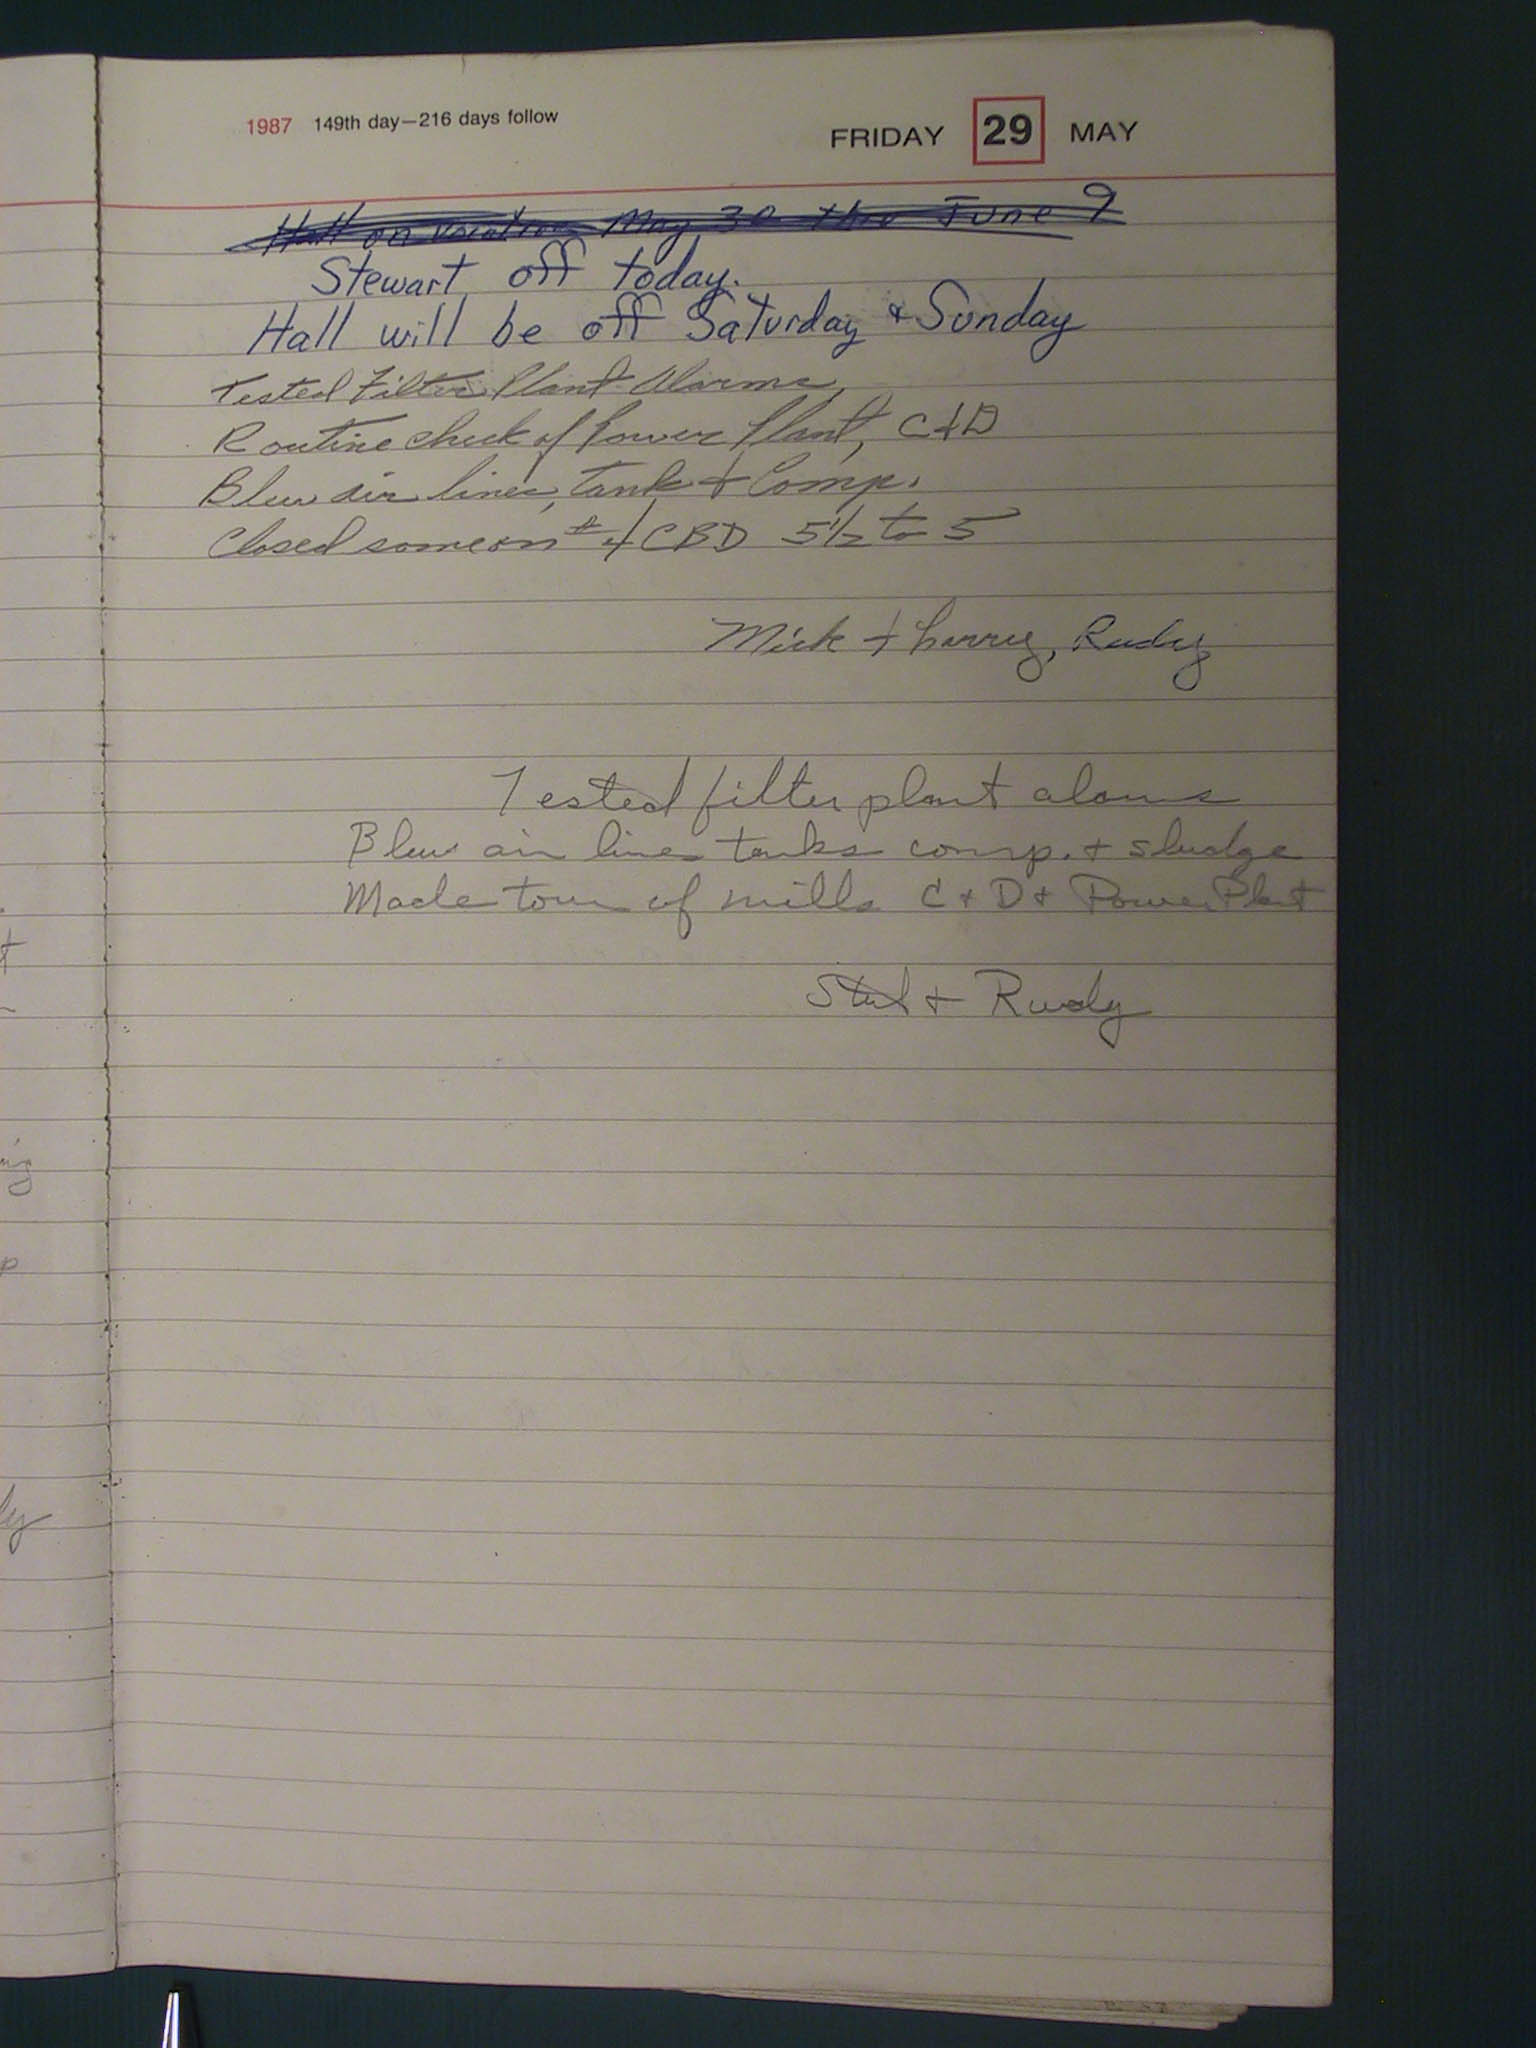 1987 149th day—216 days follow
FRIDAY 29 MAY
Hall on vacation May 30 thru June 9
Stewart off today.
Hall will be off Saturday & Sunday
Tested Filter Plant Alarms,
Routine check of Power Plant, C+D
Blew air lines, tank + Comp.
Closed some on #4 CBD 5½ to 5
Mick + Larry, Rudy
Tested filter plant alarms
Blew air lines tanks comp. + sludge
Made tour of mills C + D + Power Plant
+ Rudy